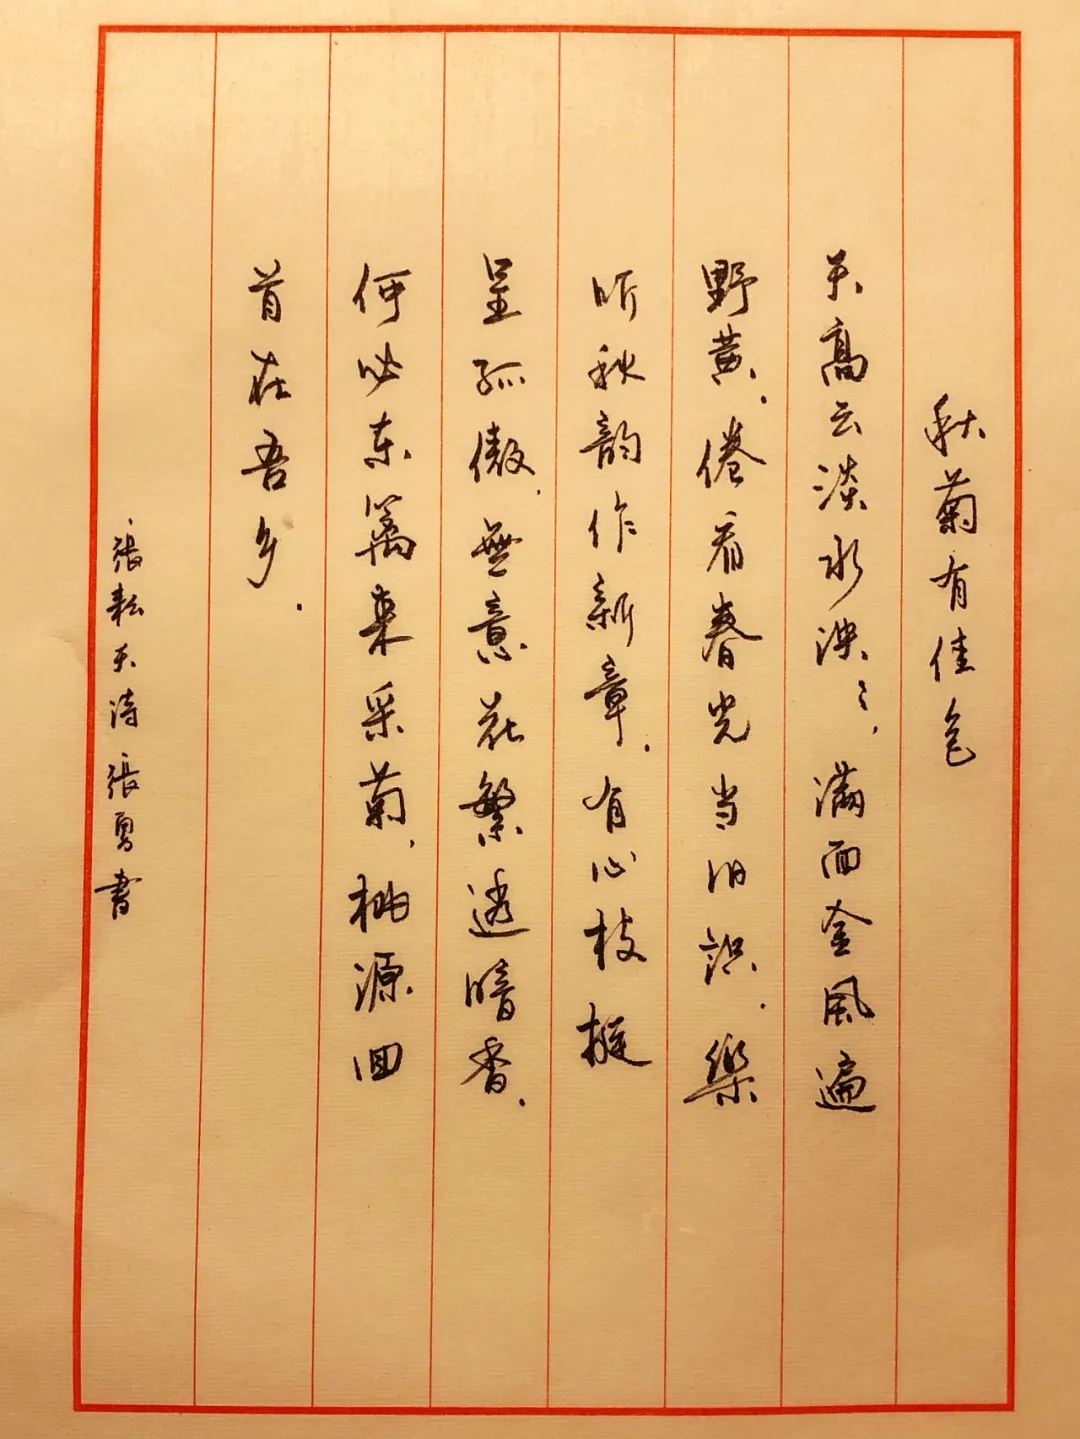 秋菊有佳色
天高云淡水泱々,满面金风遍
野黄.倦看春光当旧识.樂
听秋韵作新章.有心枝挺
呈孤傲.無意花繁透暗香.
何必东篱来采菊,桃源回
首在吾乡.
張耘天诗張勇書